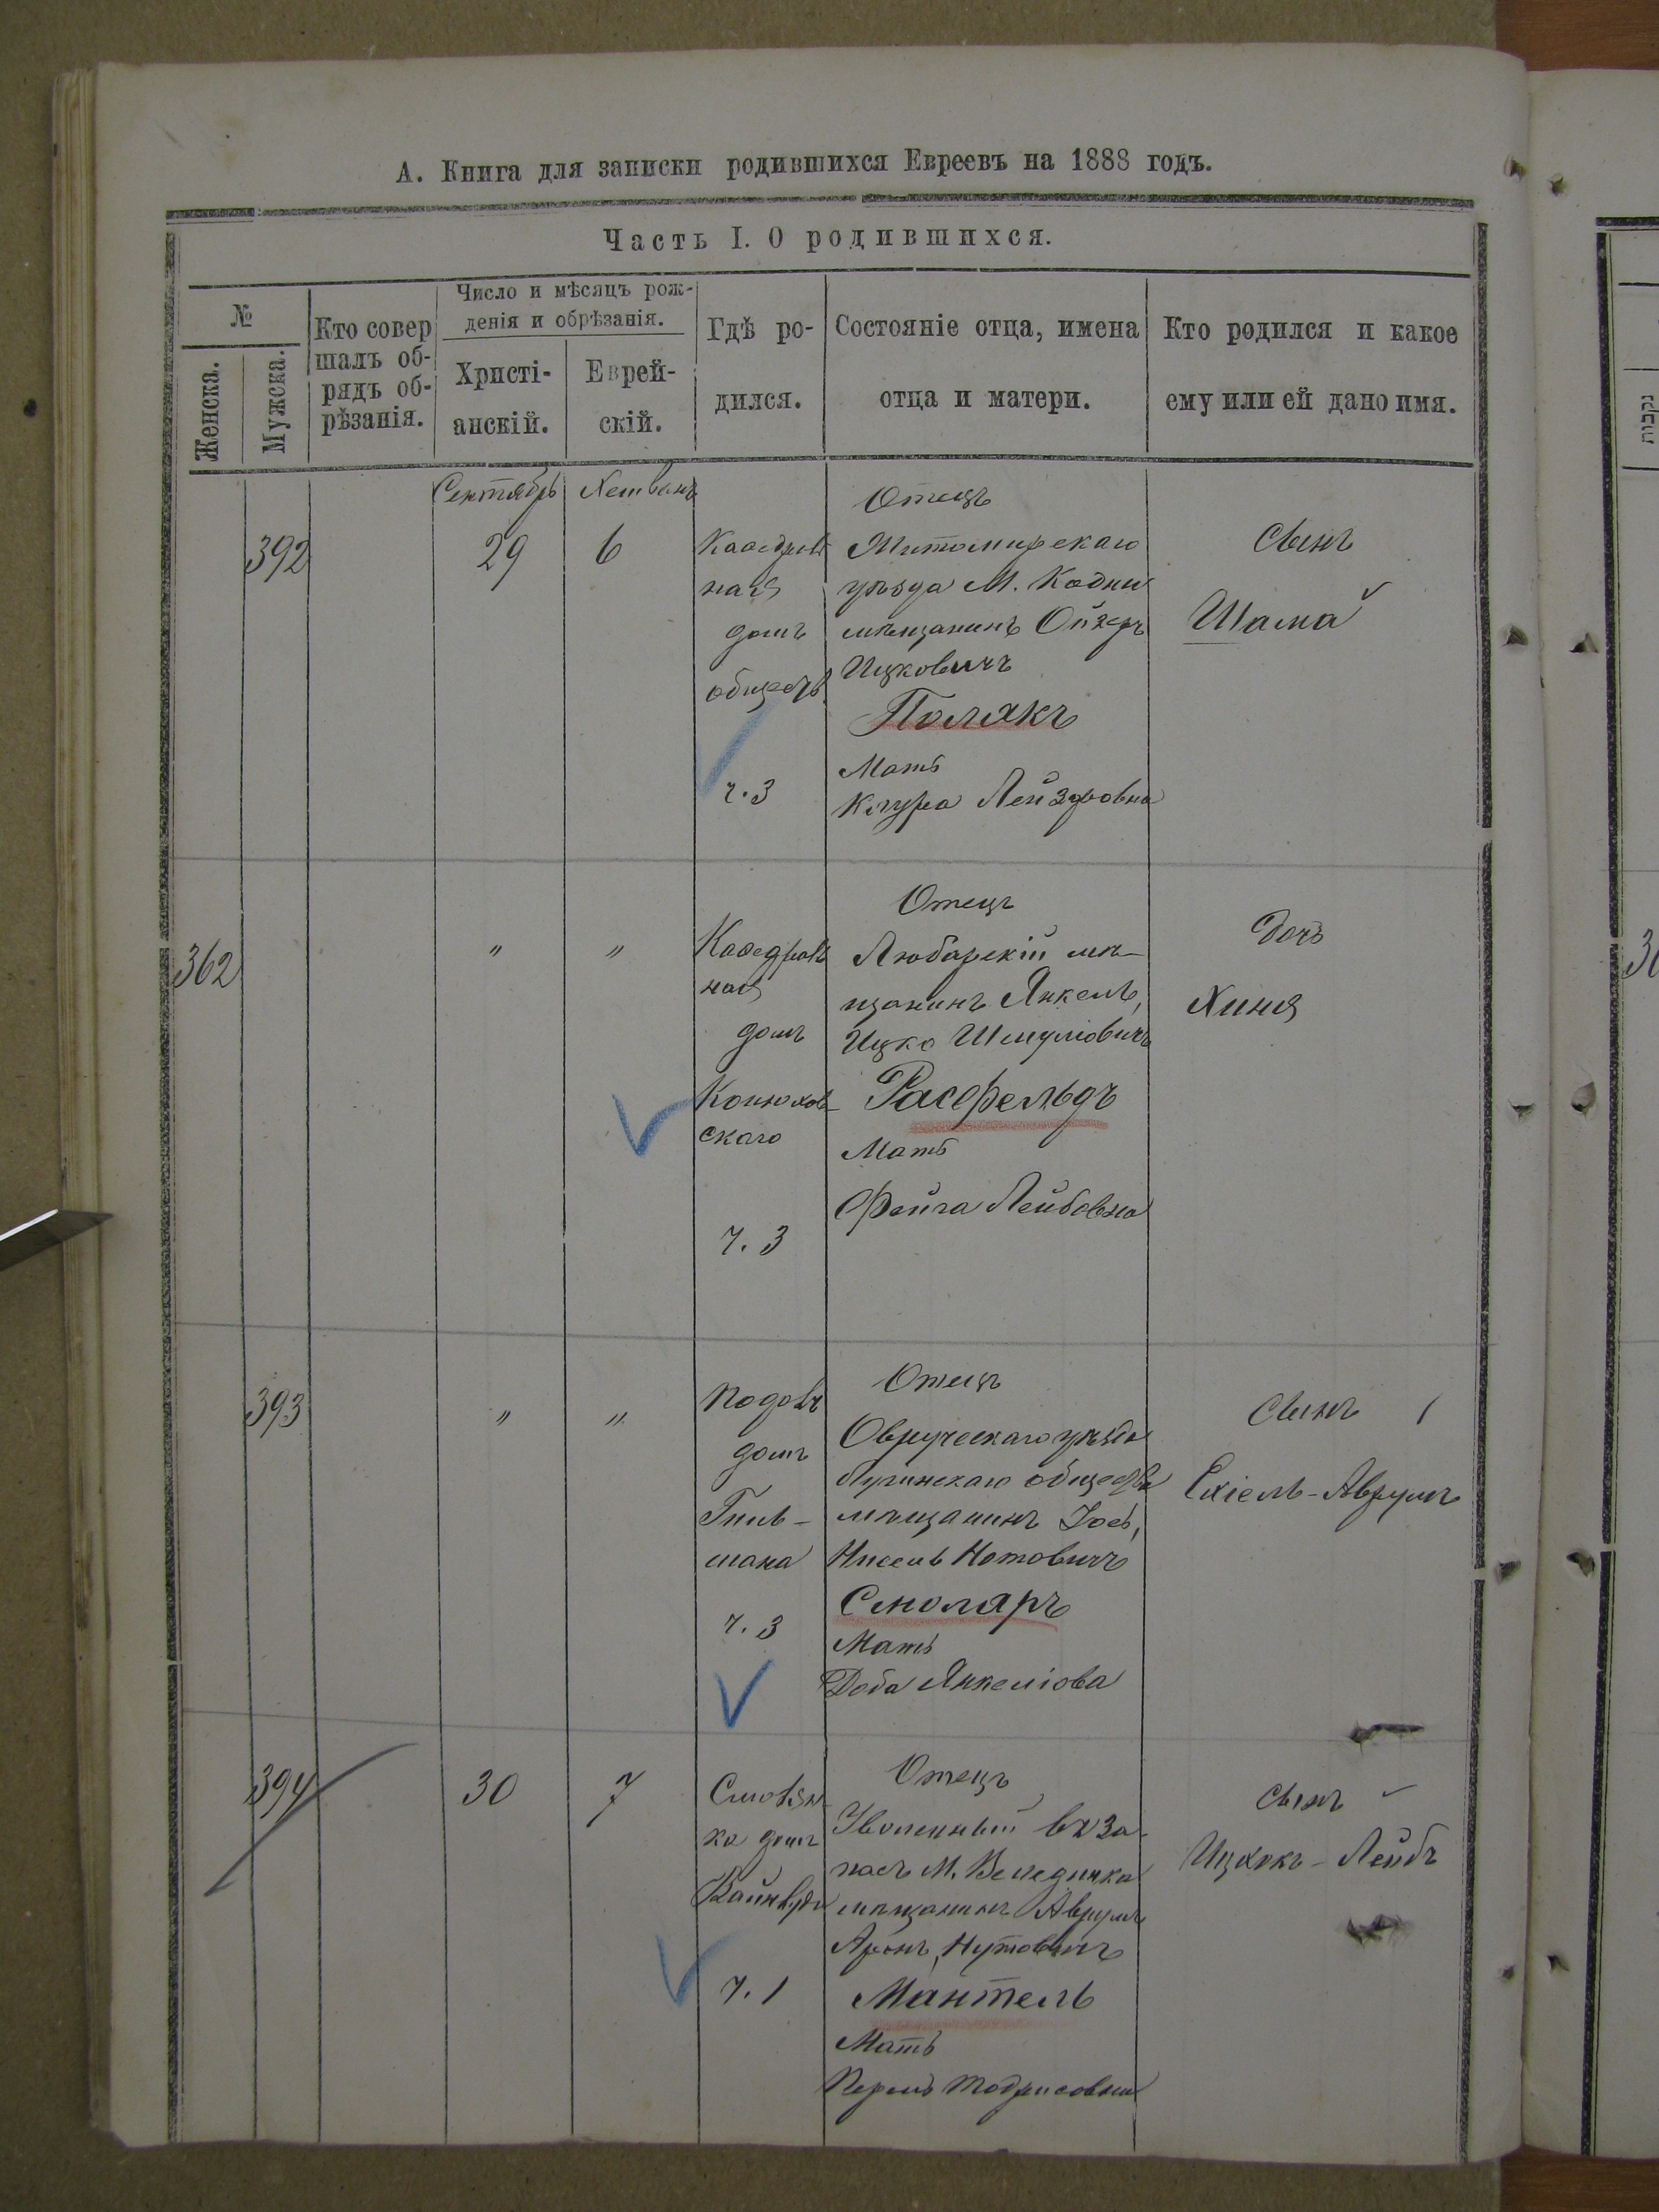 А. Книга для записки родившихся Евреевъ на 1888 годъ.
Часть I. О родившихся.
№
Женска.
Мужска.
Кто совер
шалъ об-
рядъ об-
рѣзанія.
Число и мѣсяцъ рож-
денія и обрѣзанія.
Христі-
анскій.
Еврей-
скій.
Гдѣ ро-
дился.
Состояніе отца, имена
отца и матери.
Кто родился и какое
ему или ей дано имя.
Сентябрь
Хешванъ
392
29
6
Каѳедраль
ная
домъ
обществ.
ч. 3
Отецъ
Житомирскаго
уѣзда М. Кодни
мѣщанинъ Ойзеръ
Ицковичъ
Полякъ
Мать
Клура Лейзеровна
Сынъ
Шама
362
"
"
Каѳедраль
ная
домъ
Конюхов-
скаго
ч. 3
Отецъ
Любарскій мѣ-
щанинъ Янкель,
Ицко Шмулiовичъ
Расфельдъ
Мать
Фейга Лейбовна
Дочь
Хиня
393
"
"
домъ
Гиль-
мана
ч. 3
Отецъ
Овручскаго уѣзда
Лугинскаго общества
мѣщанинъ Іось,
Нисель Нотовичъ
Смоляръ
Мать
Доба Янкеліова
Сынъ
Ехіель-Аврумъ
394
30
7
домъ
ч. 1
Отецъ
Уволенный въ за-
пасъ М. Веледника
мѣщанинъ Аврумъ
Аронъ, Нутовичъ
Мантель
Мать
Перель Тодрисовна
Сынъ
Ицхокъ-Лейбъ